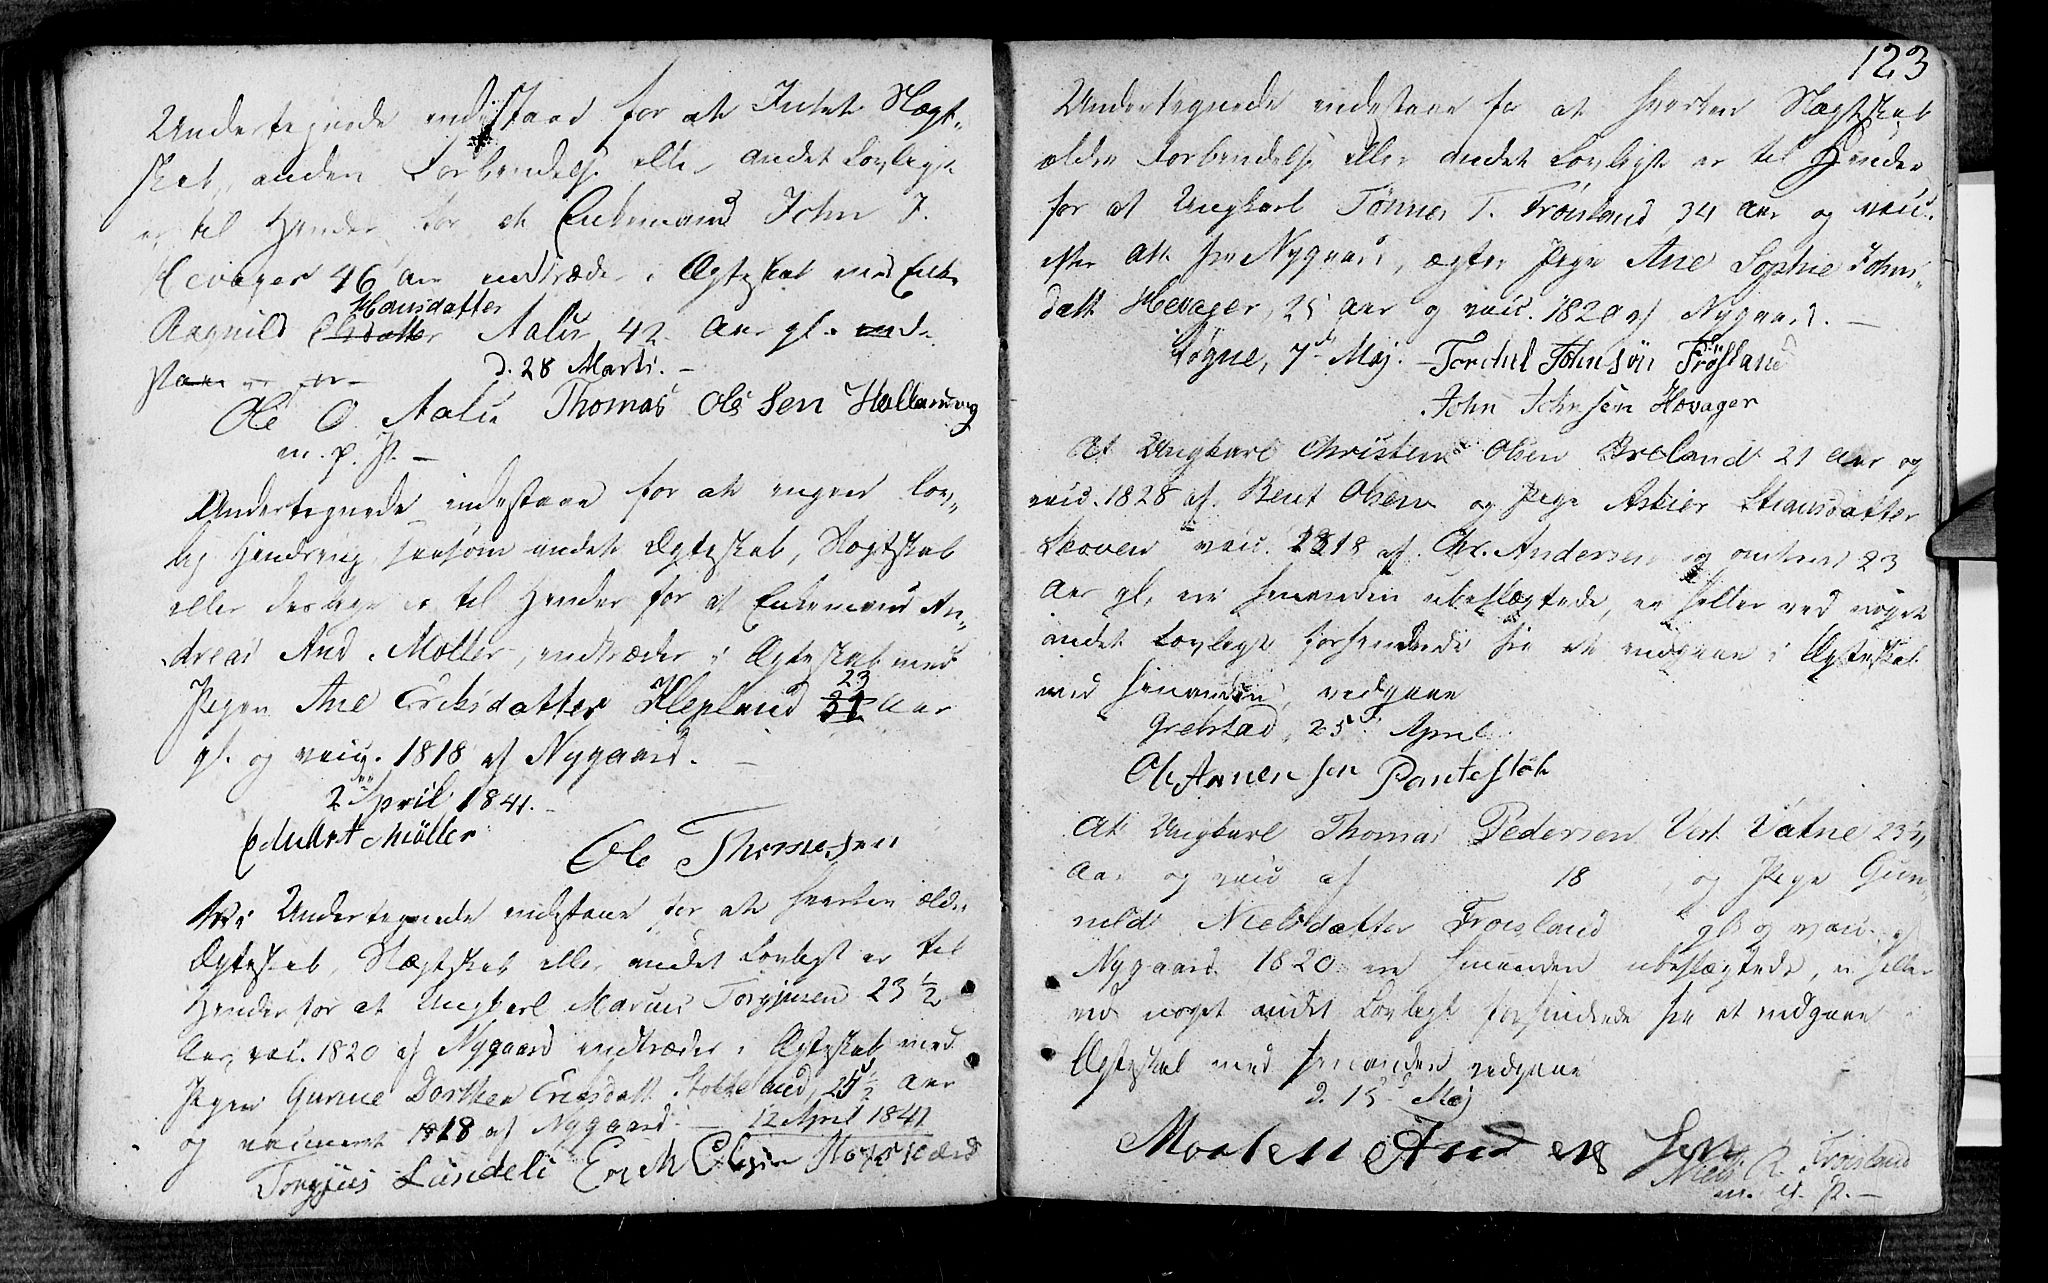 Undertegnede indestaae for at Intet Slægt-
skab, anden Forbindelse eller andet Lovligt
er til Hinder for at Enkemand John J.
Hevager 46 Aar indtræder i Ægteskab med Enke
Hansdatter
Ragnild Aalie 42 Aar gl. inde-
staae
d. 28 Marts. -
Ole O. Aalie Thomas Olesen Hallandvig
m. p. P. -
Undertegnede indestaae for at ingen lov-
lig Hindring, saasom andet Ægteskab, Slægtskab
eller deslige er til Hinder for at Enkemand An-
dreas And. Møller, indtræder i Ægteskab med
23
Pigen Ane Eriksdatter Klepland 31 Aar
gl. og vacc. 1818 af Nygaard. -
2den April 1841. -
Edvart Møller
Ole Thomesen
Undertegnede indestaae for at hverken ældre
Ægteskab, Slægtskab eller andet Lovligt er til
Hinder for at Ungkarl Marcus Torgjusen 23 1/2
Aar, vac. 1820 af Nygaard indtræder i Ægteskab med
Pigen Gunne Dorthea Ericsdatt. Stokkeland, 25 1/2 Aar
og vaccineret 1818 af Nygaard. - 12 April 1841
Torgjus Lundeli Erik Olsen Stokkeland
123
Undertegnede indestaae for at hverken Slægtskab
ældre Forbindelse eller andet Lovligt er til Hinder
for at Ungkarl Tønnes T. Frøisland, 34 Aar og vacc.
efter Att. fra Nygaard, ægter Pige Ane Sophie Johns-
datt. Hevager, 25 Aar og vacc. 1820 af Nygaard. -
Søgne, 7d Maj. - Torchel Johnsön Frøsland
John Johnsen Hovager
At Ungkarl Christen Olsen Breland 21 Aar og
vacc. 1828 af Bent Olsen og Pige Asties Stiansdatter
Skoven vacc. 1818 af Chr. Andersen og omtrent 23
Aar gl. ere hinanden ubeslægtede, ei heller ved noget
andet Lovligt forhindrede fra at indgaae i Ægteskab
med hinanden, vedgaae
Grebstad, 25d April
Ole Annensen Pantestøk
At Ungkarl Thomas Pedersen Vest Vatne 23 1/2
Aar og vacc af 18 , og Pige Gun-
nild Nielsdatter Frøisland gl. og vacc. af
Nygaard 1820 ere hinanden ubeslægtede, ei heller
ved noget andet Lovligt forhindrede fra at indgaae i
Ægteskab med hinanden vedgaae
d. 15d Maj
Morten Andersen
Niels Frøisland
m. p. P. -